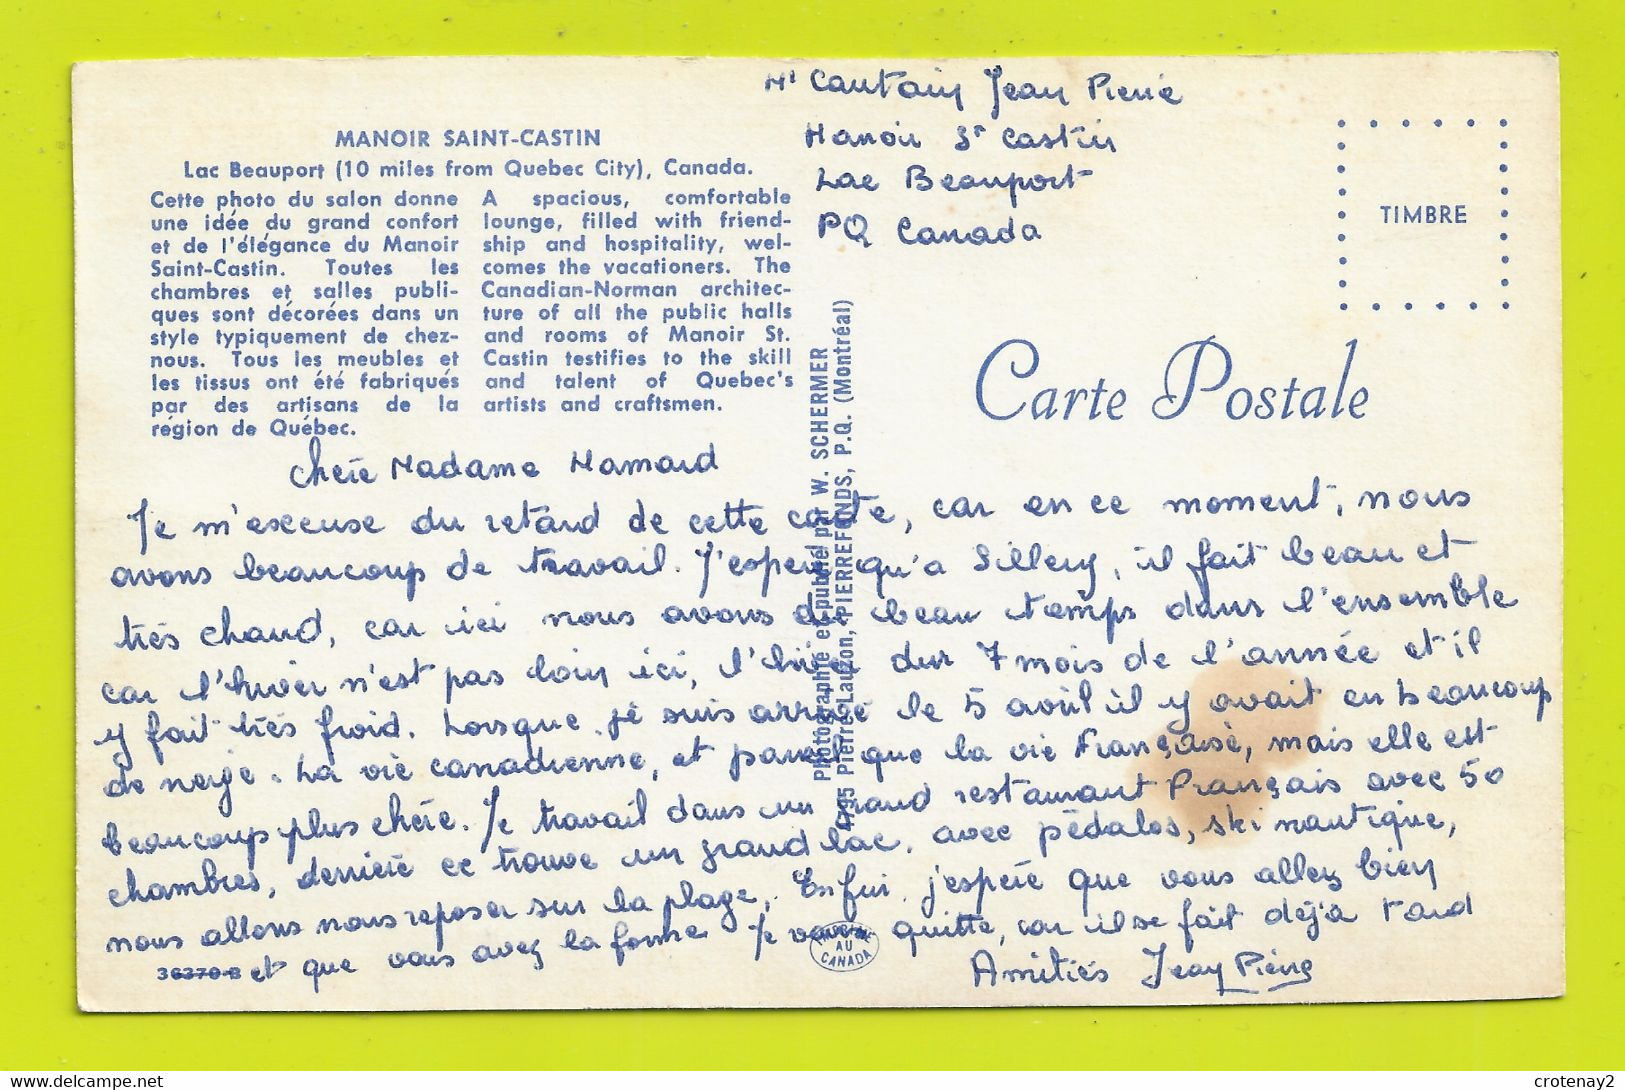 Mr Cautain Jean Pierre
Manoir St Castin
Lac Beauport
PQ Canada
TIMBRE
MANOIR SAINT-CASTIN
Lac Beauport (10 miles from Quebec City), Canada.
Cette photo du salon donne
une idée du grand confort
et de l'élégance du Manoir
Saint-Castin. Toutes les
chambres et salles publi-
ques sont décorées dans un
style typiquement de chez-
nous. Tous les meubles et
les tissus ont été fabriqués
par des artisans de la
région de Québec.
A spacious, comfortable
lounge, filled with friend-
ship and hospitality, wel-
comes the vacationers. The
Canadian-Norman architec-
ture of all the public halls
and rooms of Manoir St.
Castin testifies to the skill
and talent of Quebec's
artists and craftsmen.
Photographié et publié par W. SCHERMER
4795 Pierre Lauzon, PIERREFONDS, P.Q. (Montréal)
Carte Postale
Chère Madame Hamard
Je m'excuse du retard de cette carte, car en ce moment, nous
avons beaucoup de travail. J'espère qu'a Sillery, il fait beau et
très chaud, car ici nous avons du beau temps dans l'ensemble
car l'hiver n'est pas loin ici, l'hiver dur 7 mois de l'année et il
y fait très froid. Lorsque je suis arrivé le 5 avril il y avait en beaucoup
de neige. La vie canadienne, et pareil que la vie Française, mais elle est
beaucoup plus chère. Je travail dans un grand restaurant Français avec 50
chambres, derrière ce trouve un grand lac, avec pédalos, ski nautique,
nous allons nous reposer sur la plage. Enfin, j'espère que vous allez bien
et que vous avez la forme Je vous quitte, car il se fait déjà tard
Amitiés Jean Pierre
36370-B
IMPRIMÉ
AU
CANADA
crotenay2